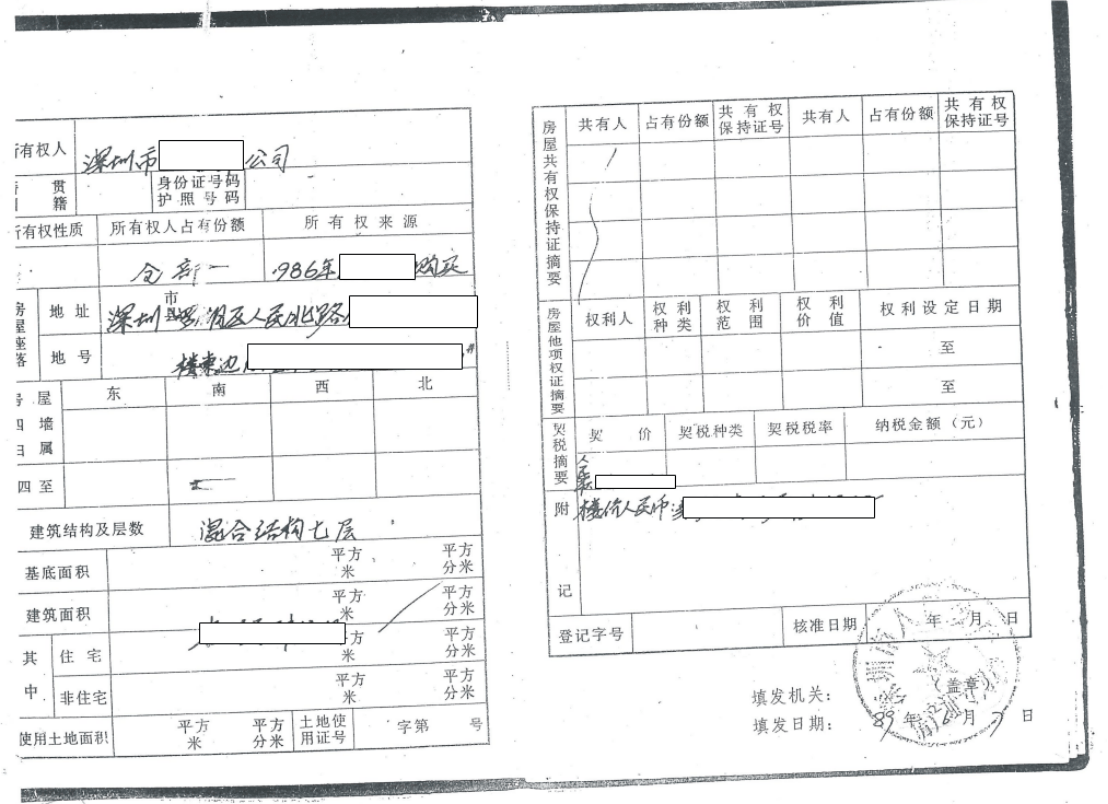 所有权人 深圳市 公司
贯 籍 身份证号码 护照号码
所有权性质 所有权人占有份额 所有权来源
全部 1986年 购买
房屋座落 地址 市 县 深圳 罗湖区人民北路
地号 楼东边
房屋四墙归属 东 南 西 北
四至
建筑结构及层数 混合结构七层
基底面积 平方米 平方分米
建筑面积 平方米 平方分米
其中 住宅 平方米 平方分米
非住宅 平方米 平方分米
使用土地面积 平方米 平方分米 土地使用证号 字第 号
房屋共有权保持证摘要 共有人 占有份额 共有权保持证号 共有人 占有份额 共有权保持证号
房屋他项权证摘要 权利人 权利种类 权利范围 权利价值 权利设定日期
至
至
契税摘要 契价 契税种类 契税税率 纳税金额(元)
人民币
附记 楼价人民币
登记字号 核准日期 年 月 日
填发机关: (盖章)
填发日期: 89年6月7日
深圳市人